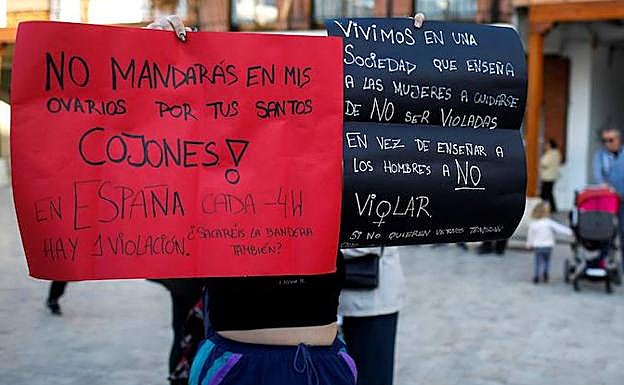 NO MANDARÁS EN MIS
OVARIOS POR TUS SANTOS
COJONES!
EN ESPAÑA CADA -4H
HAY 1 VIOLACIÓN. ¿SACARÉIS LA BANDERA
TAMBIÉN?
VIVIMOS EN UNA
SOCIEDAD QUE ENSEÑA
A LAS MUJERES A CUIDARSE
DE NO SER VIOLADAS
EN VEZ DE ENSEÑAR A
LOS HOMBRES A NO
VIOLAR
SI NO QUIEREN VERNOS TENDRÁN